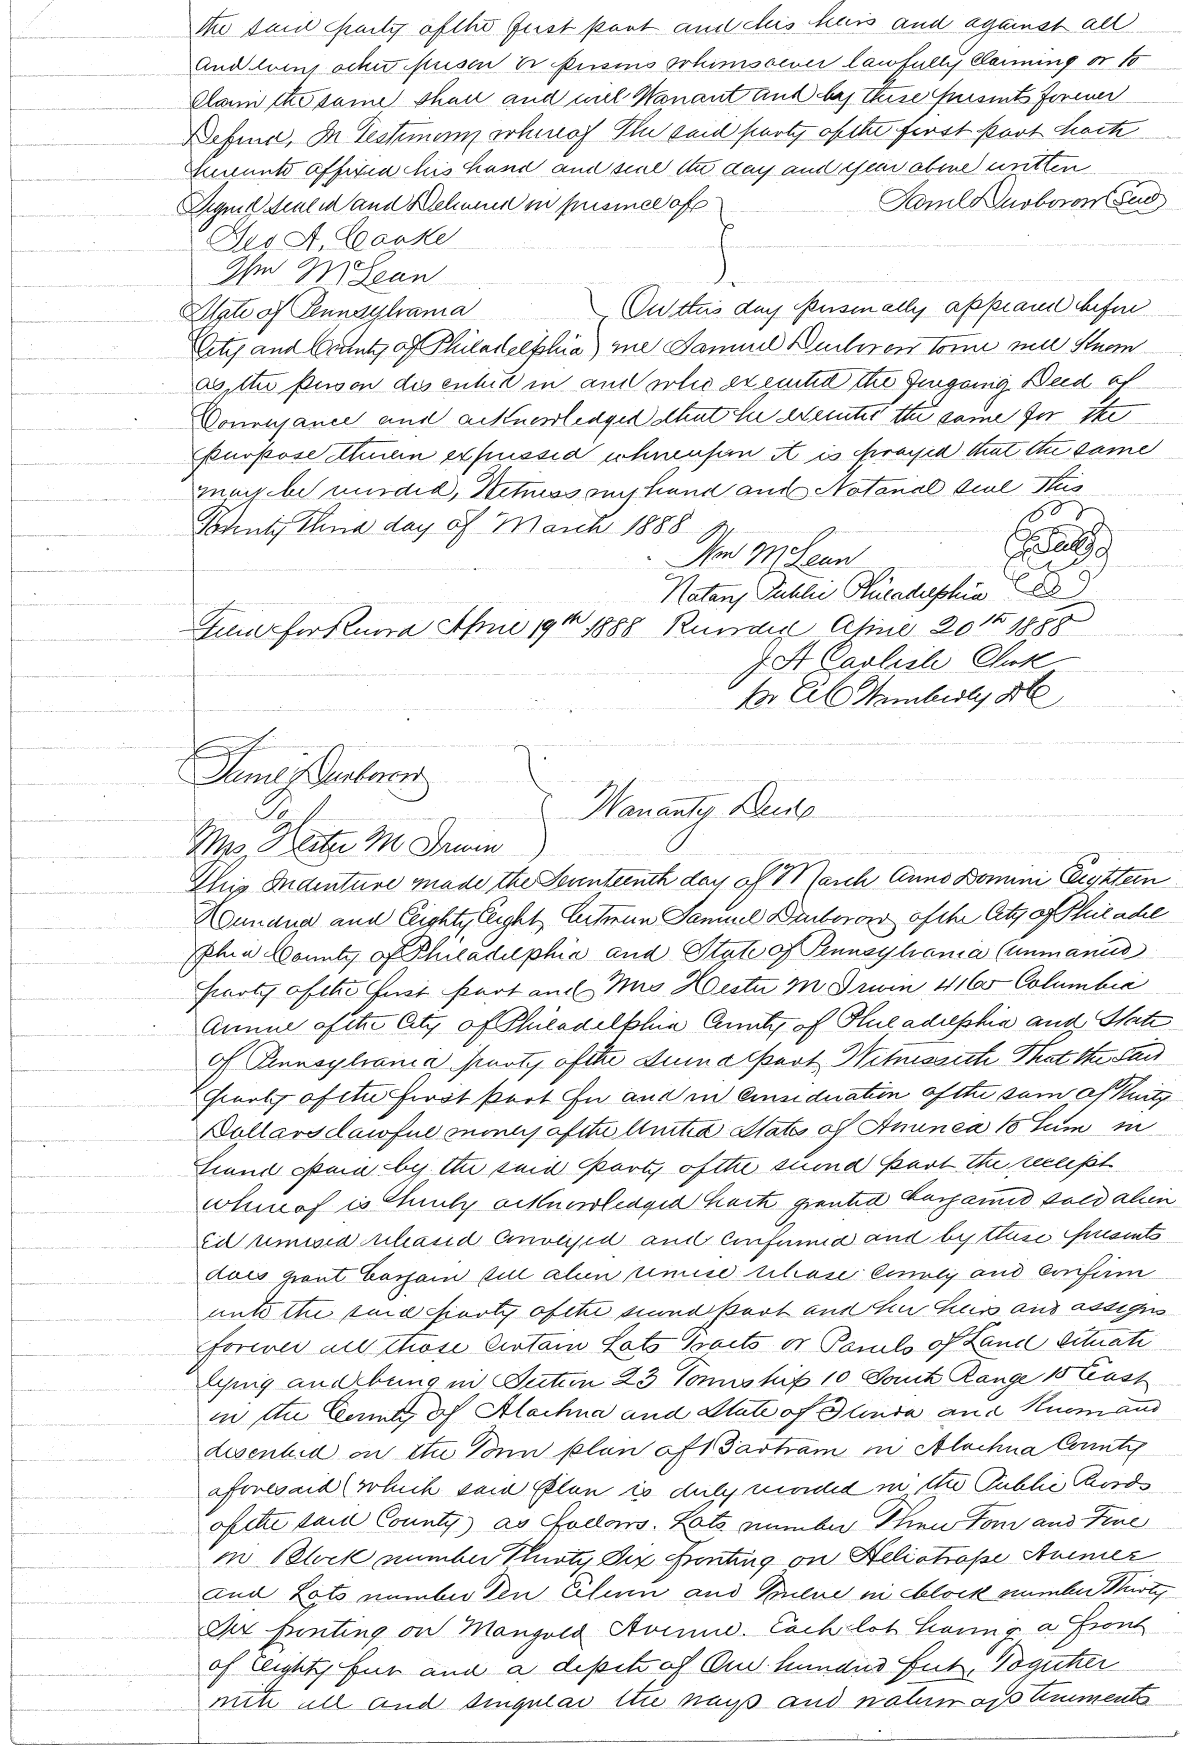 the said party of the first part and his heirs and against all
and every other person or persons whomsoever lawfully claiming or to
Claim the same shall and will Warrant and by these presents forever
Defend, In Testimony whereof The said party of the first part hath
hereunto affixed his hand and seal the day and year above written
Signed Sealed and Delivered in presence of Saml Durborow (Seal)
Geo A. Cooke
Wm McLean
State of Pennsylvania } On this day personally appeared before
City and County of Philadelphia } me Samuel Durborow to me well Known
as the person described in and who executed the foregoing Deed of
Conveyance and acknowledged that he executed the same for the
purpose therein expressed whereupon it is prayed that the same
may be recorded, Witness my hand and Notarial seal This
Twenty Third day of March 1888
Wm McLean (Seal)
Notary Public Philadelphia
Filed for Record April 19th 1888 Recorded April 20th 1888
J A Carlisle Clerk
pr Wimberly DC
Saml Durborow
To } Warranty Deed
Mrs Hester M Irwin
This Indenture made the Seventeenth day of March Anno Domini Eighteen
Hundred and Eighty Eight, between Samuel Durborow of the City of Philadel
phia County of Philadelphia and State of Pennsylvania (unmarried)
party of the first part and Mrs Hester M Irwin 4160 Columbia
Avenue of the City of Philadelphia County of Philadelphia and State
of Pennsylvania party of the Second part Witnesseth That the said
party of the first part for and in Consideration of the sum of Thirty
Dollars lawful money of the United States of America to him in
hand paid by the said party of the second part the receipt
whereof is hereby acknowledged hath granted bargained sold alien
ed remised released Conveyed and confirmed and by these presents
does grant bargain sell alien remise release Convey and confirm
unto the said party of the second part and her heirs and assigns
forever all those Certain Lots Tracts or Parcels of Land situate
lying and being in Section 23 Township 10 South Range 18 East
in the County of Alachua and State of Florida and Known and
described on the Town plan of Bartram in Alachua County
aforesaid (which said Plan is duly recorded in the Public Records
of the said County) as follows. Lots number Three Four and Five
in Block number Thirty Six fronting on Heliotrope Avenue
and Lots number Ten Eleven and Twelve in block number Thirty
Six fronting on Mangold Avenue. Each lot having a front
of Eighty feet and a depth of One hundred feet, Together
with all and singular the ways and watercourses tenements